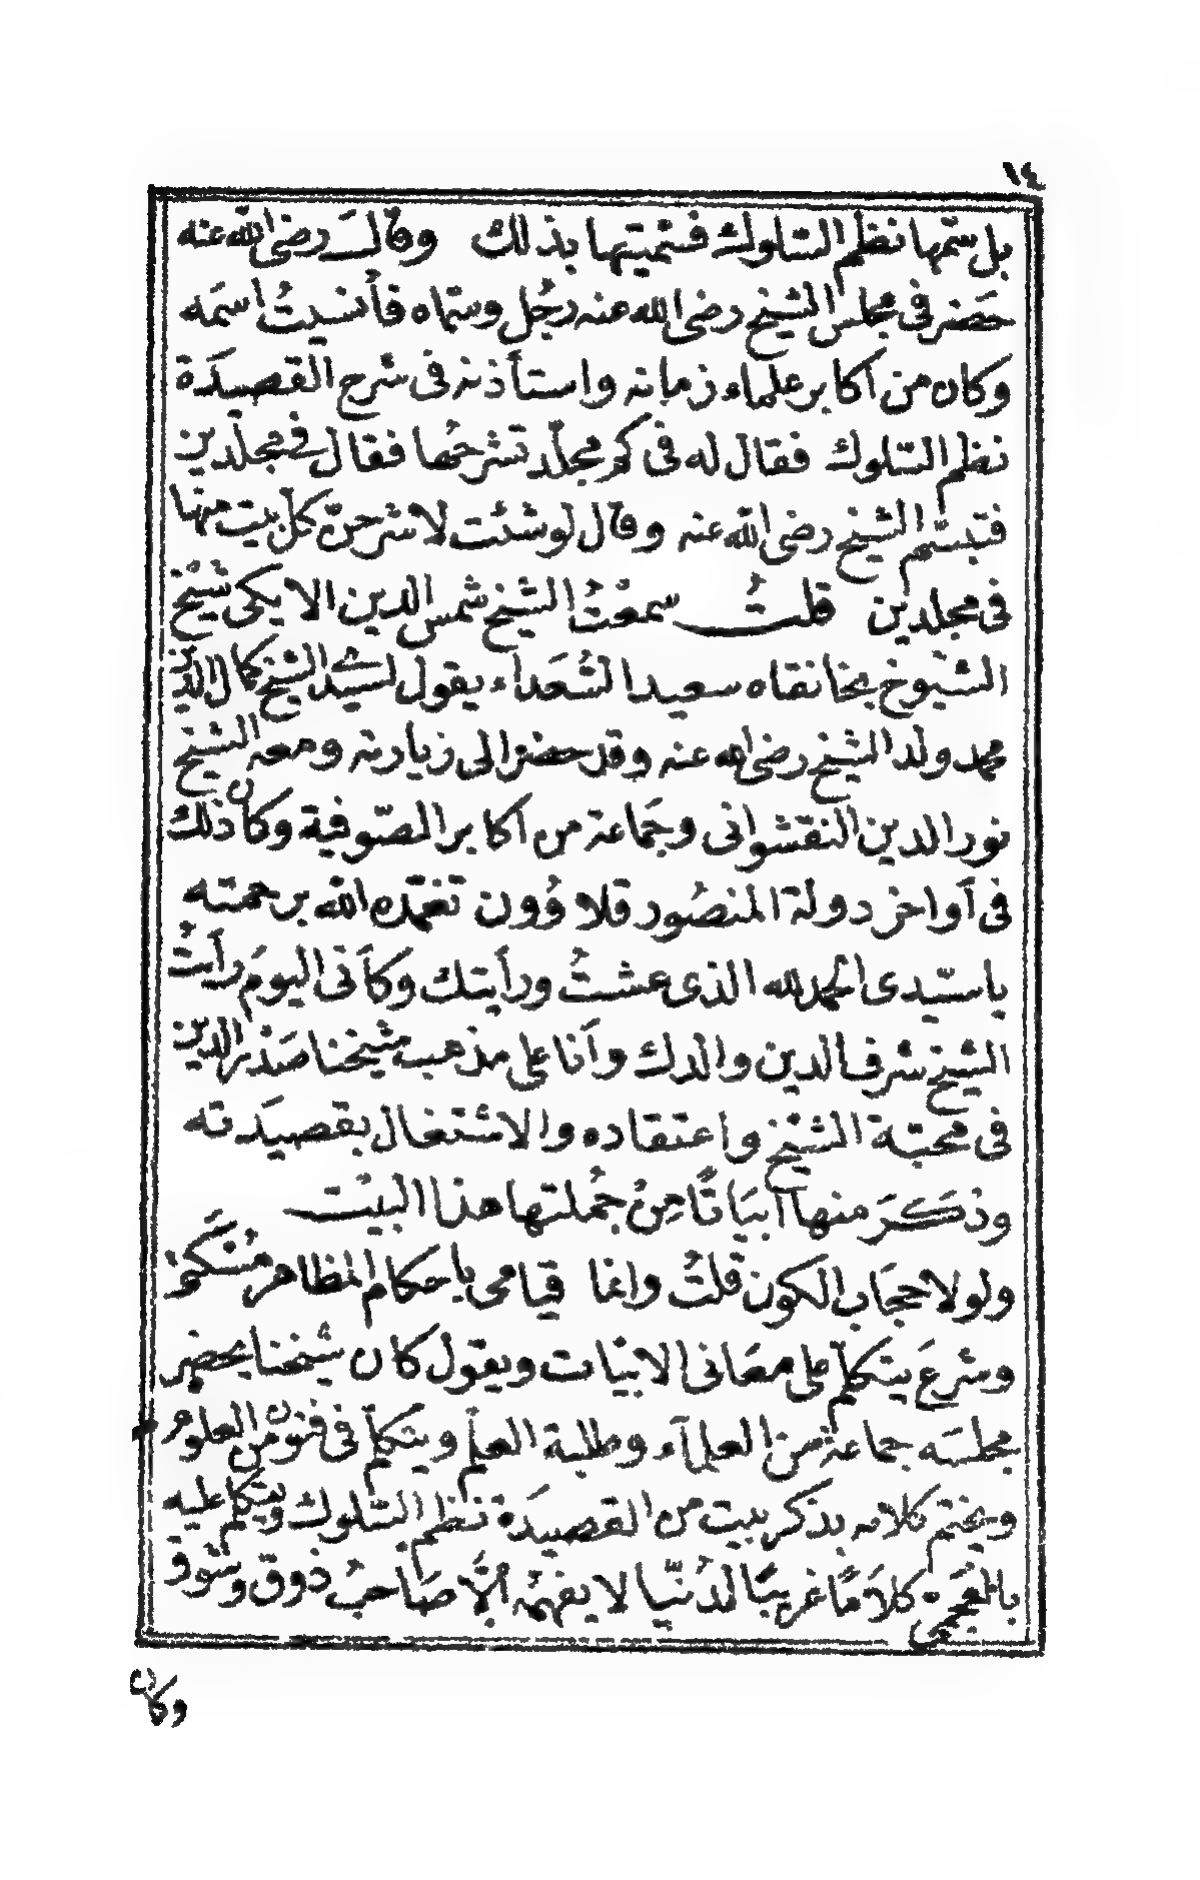 ١٤
بل سمّها نظم السّلوك فسَمّيتها بذلك وقالَ رضي الله عنه
حَضَر في مجلس الشيخ رضي الله عنه رجُل وسمّاه فأنسيتُ اسمَه
وكان من اكابر علماء زمانه واستأذنه في شرح القصيدَة
نظم السّلوك فقال له في كم مجلّد تشرحُها فقال في مجلّدين
فتبسّم الشيخ رضي الله عنه وقال لو شئت لاشرحنّ كل بيت منها
في مجلدين قلتُ سمعْتُ الشيخ شمس الدين الايكي شيخ
الشيوخ بخانقاه سعيد السُّعَداء يقول لسيّد الشيخ كمال الدين
محمد ولد الشيخ رضي الله عنه وقد حضر الى زيارته ومعه الشيخ
نور الدين النقشواني وجَماعة من اكابر الصّوفية وكان ذلك
في أواخر دولة المنصُور قلاوُون تغمّده الله برحمته
يا سيّدى الحمد لله الذى عشتُ ورأيتك وكأَنى اليومَ رأيتُ
الشيخ شرف الدين والدك وأنا على مذهب شيخنا صَدْر الدين
في محبّة الشيْخ واعتقاده والاشتغال بقصيدَته
وذكَرَ منها ابيَاتًا مِنْ جُملتها هذا البيْت
ولولا حجاب الكون قلتُ وانما قيامى باحكام المظاهر مُسْكِتى
وشرعَ يتكلم على معَانى الابيات ويقول كان شيخنا يحضر
مجلسَه جماعة من العلمآء وطلبة العلم ويتكلّم في فنون من العلوم
ويختم كلامه بذكر بيت من القصيدَة نظم السّلوك ويتكلم عليه
بالعجميّ كلاَمًا غريبًا لدُنّيا لا يفهمُه الّا صَاحبُ ذوق وشوق
وكان